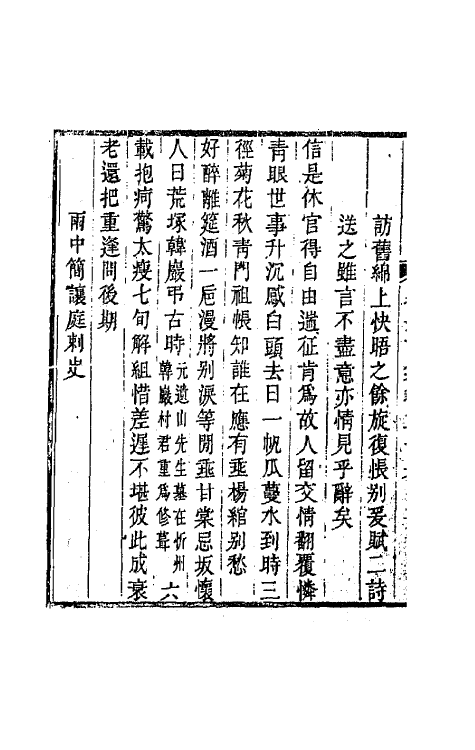 訪舊綿上快晤之餘旋復悵别爰賦二詩
送之雖言不盡意亦情見乎辭矣
信是休官得自由遄征肯爲故人留交情翻覆憐
青眼世事升沉感白頭去日一帆瓜蔓水到時三
徑菊花秋青門祖帳知誰在應有垂楊綰别愁
好醉離筵酒一巵漫將别淚等閒垂甘棠忌坂懷
人日荒塚韓巖弔古時元遺山先生墓在忻州韓巖村君重爲修葺六
載抱疴驚太瘦七旬解組惜差遲不堪彼此成衰
老還把重逢問後期
雨中簡讓庭刺史